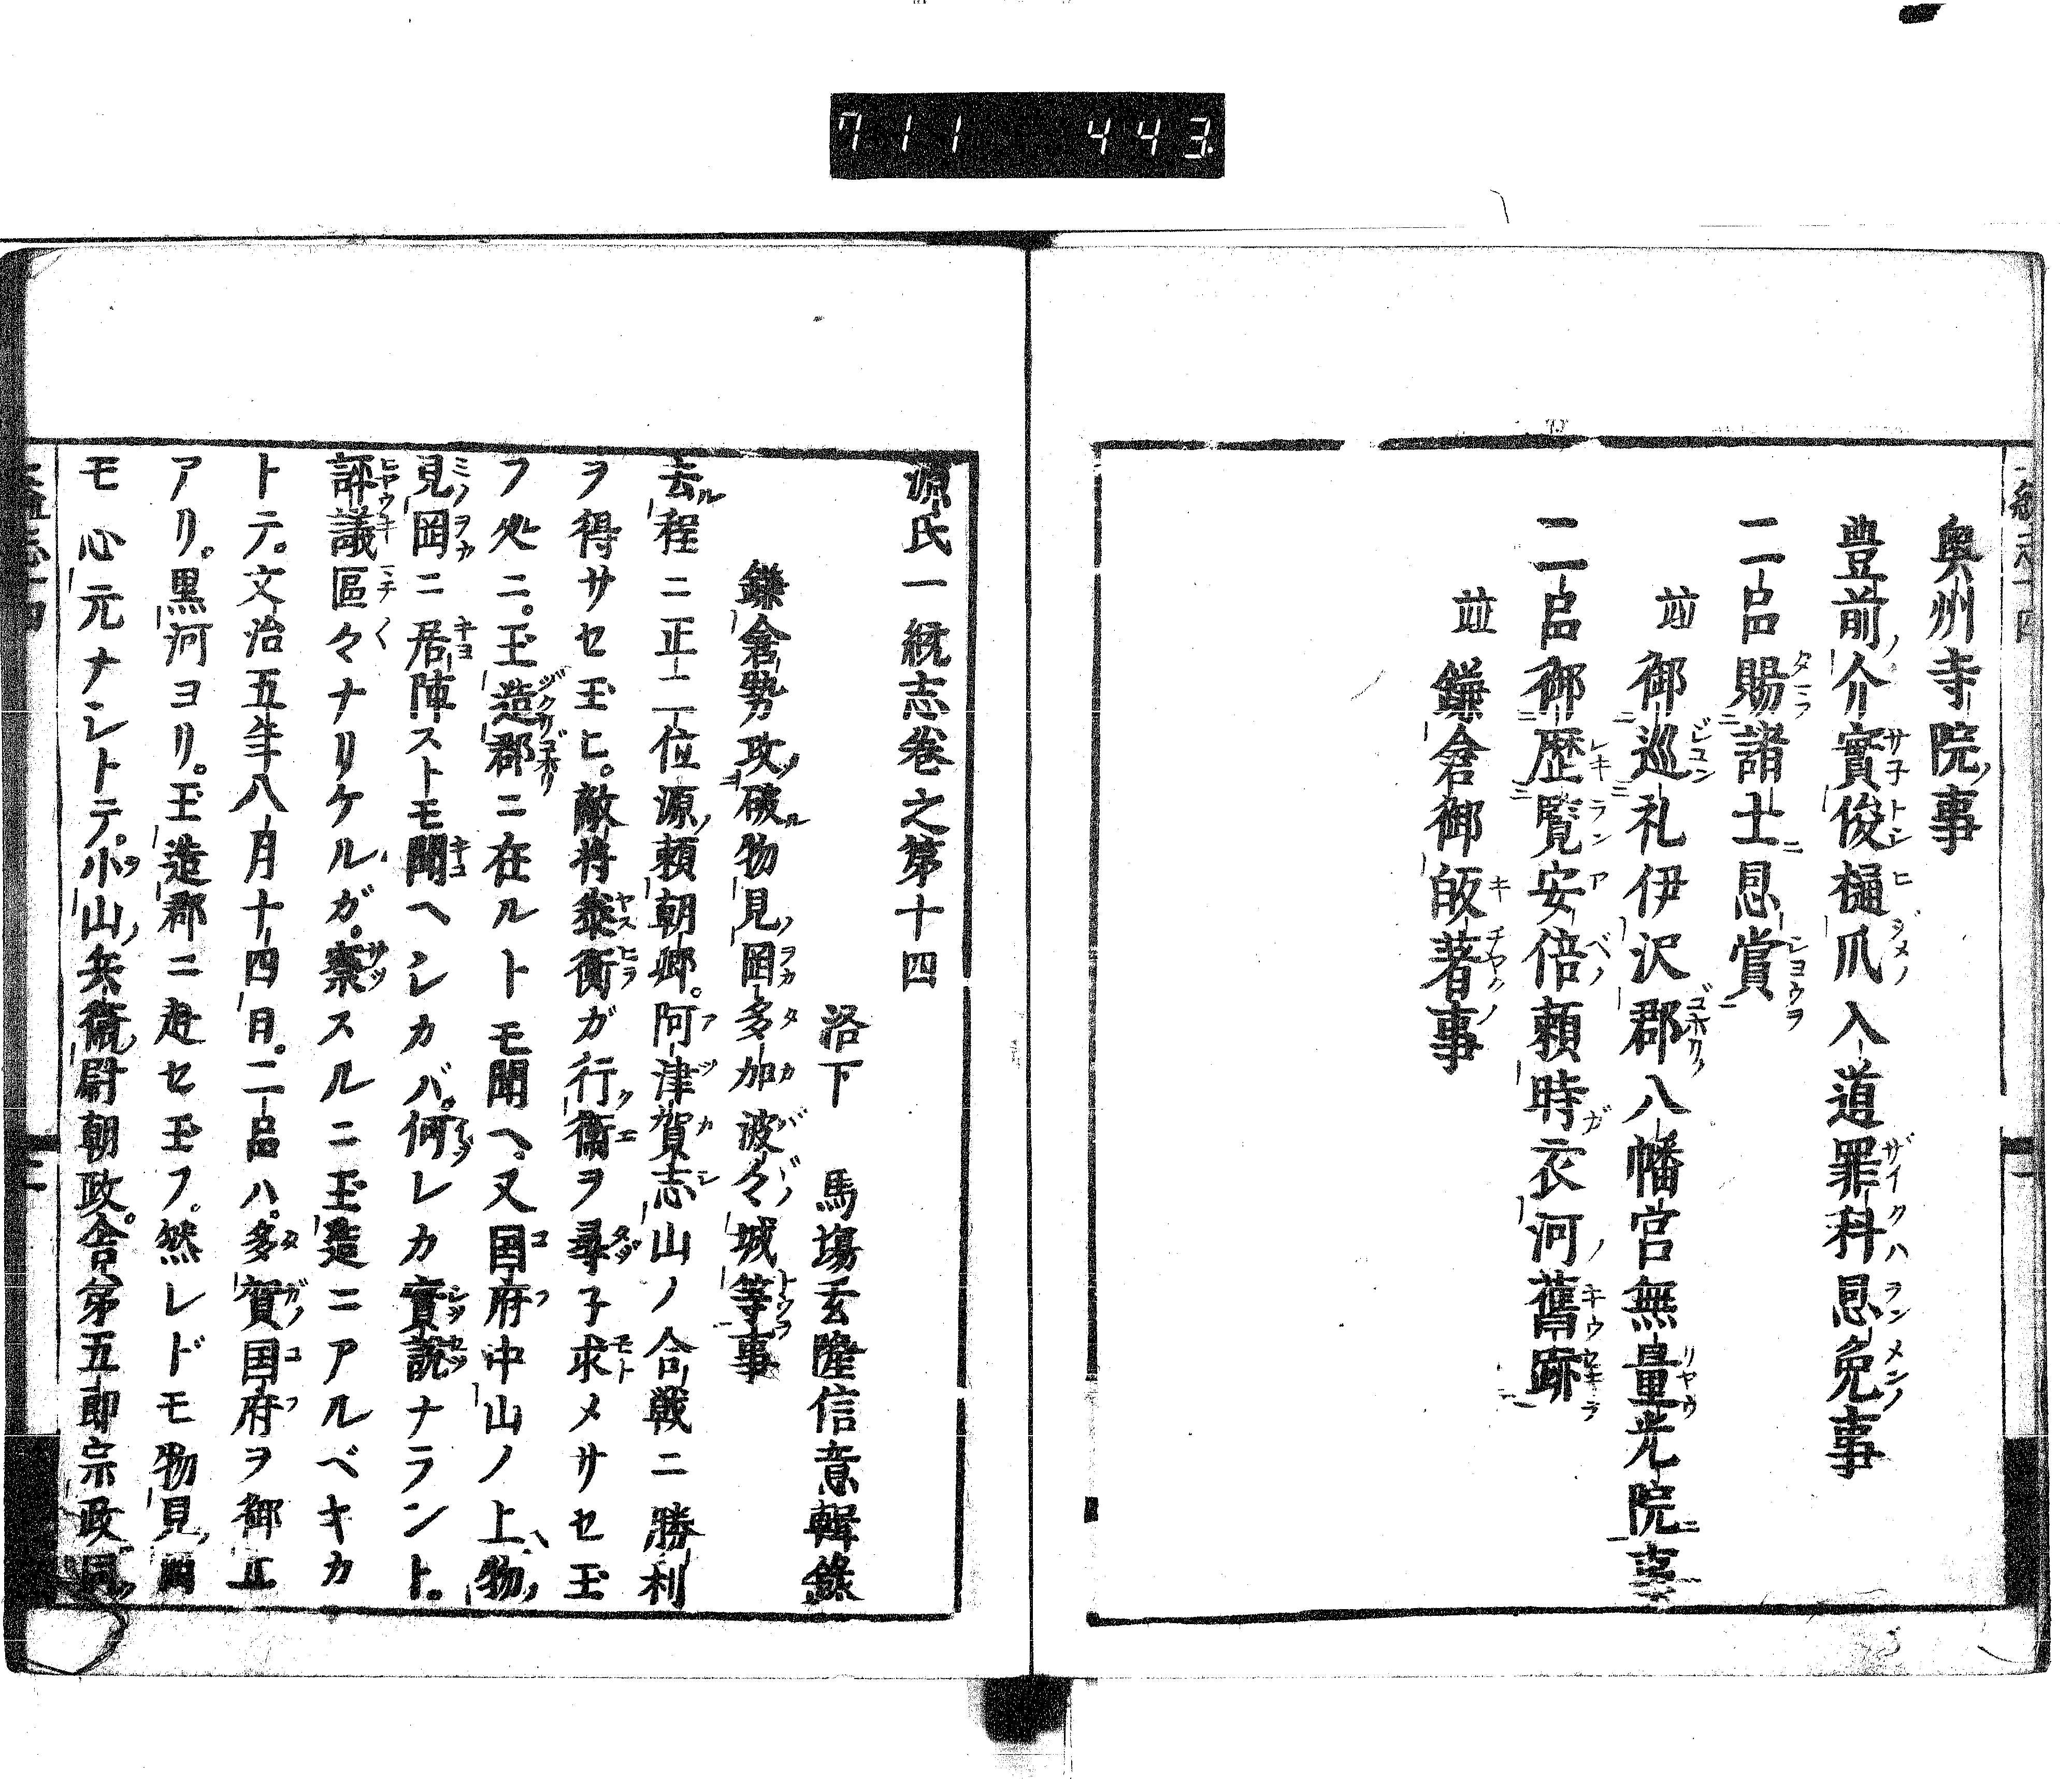 711 443
奥州寺院ノ事
豊前ノ介實俊樋爪入道罪科恩免事
二品賜諸士恩賞
並御巡礼伊沢郡八幡宮無量光院事
二品御歴覧安倍頼時衣河舊跡
並鎌倉御皈著事
源氏一統志巻之第十四
洛下 馬場玄隆信意輯錄
鎌倉勢攻破物見岡多加波々城等事
去程ニ正二位源頼朝卿。阿津賀志山ノ合戦ニ勝利
ヲ得サセ玉ヒ。敵将泰衡ガ行衞ヲ尋子求メサセ玉
フ処ニ。玉造郡ニ在ルトモ聞ヘ。又国府中山ノ上物
見岡ニ居陣ストモ聞ヘシカバ。何レカ實説ナラント。
評議區々ナリケルガ。察スルニ玉造ニアルベキカ
トテ。文治五年八月十四日。二品ハ。多賀国府ヲ御立
アリ。黒河ヨリ。玉造郡ニ赴セ玉フ。然レドモ物見岡
モ心元ナシトテ。小山兵衞尉朝政。舎弟五郎宗政同